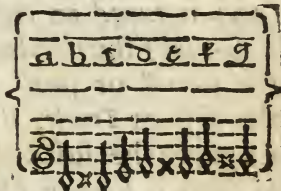 a b c d e f g